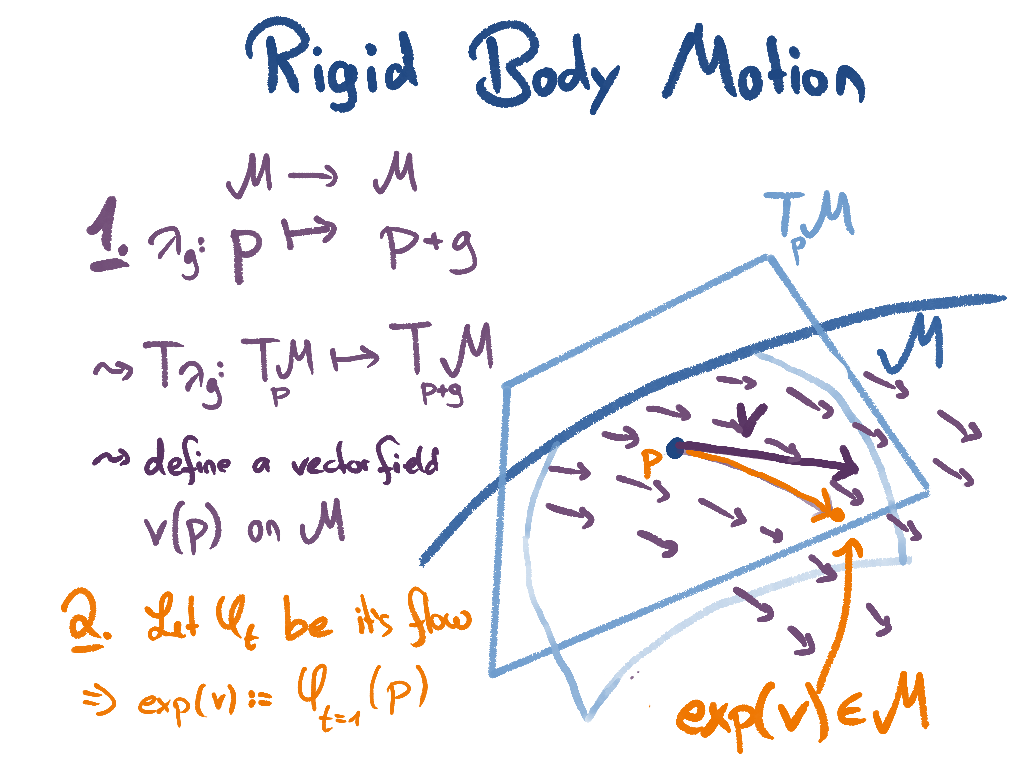 Rigid Body Motion
M → M
1. λg: p ↦ p+g
⇝ Tλg: TpM ↦ Tp+gM
⇝ define a vectorfield
v(p) on M
2. Let φt be it's flow
⇒ exp(v) := φt=1(p)
TpM
M
v
p
exp(v) ∈ M